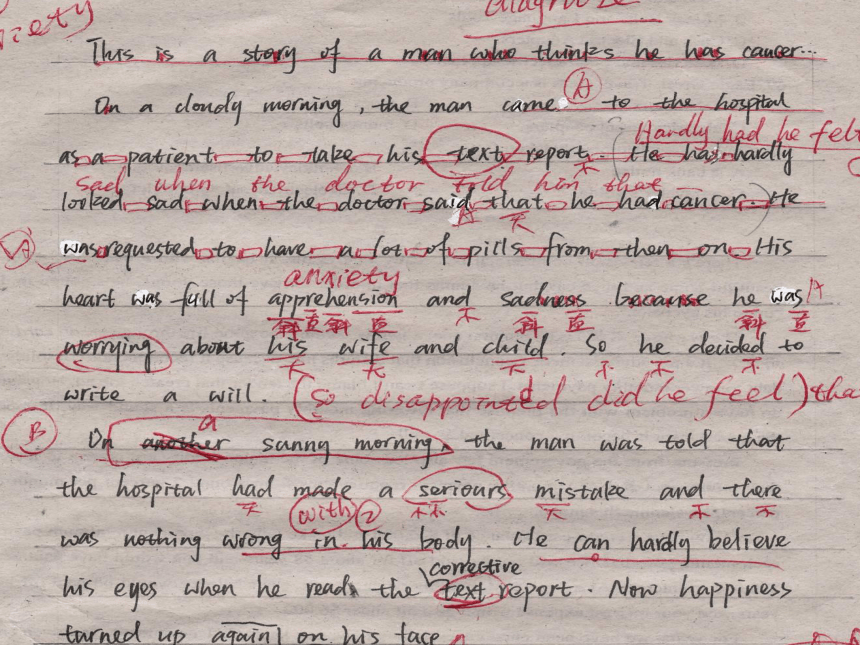 diagnose
This is a story of a man who thinks he has cancer...
A
On a cloudy morning, the man came to the hospital
Hardly had he felt
as a patient to take his text report. He has hardly
sad when the doctor told him that
looked sad when the doctor said that he had cancer. He
was requested to have a lot of pills from then on. His
anxiety
heart was full of apprehension and sadness because he was
worrying about his wife and child. So he decided to
write a will. (So disappointed did he feel) tha
B
a
On another sunny morning, the man was told that
the hospital had made a seriours mistake and there
with 2
was nothing wrong in his body. He can hardly believe
corrective
his eyes when he read the text report. Now happiness
turned up again on his face